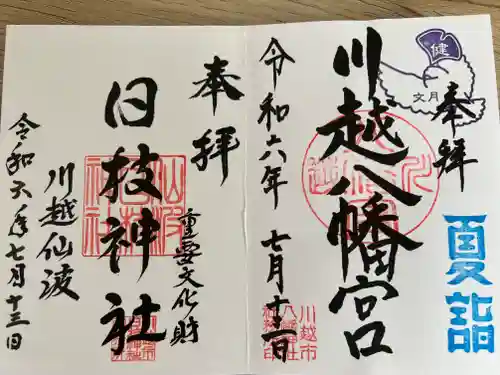 健
文月
奉拝
夏詣
川越八幡宮
川越市
令和六年 七月十三日
奉拝
重要文化財
日枝神社
川越仙波
令和六年七月十三日